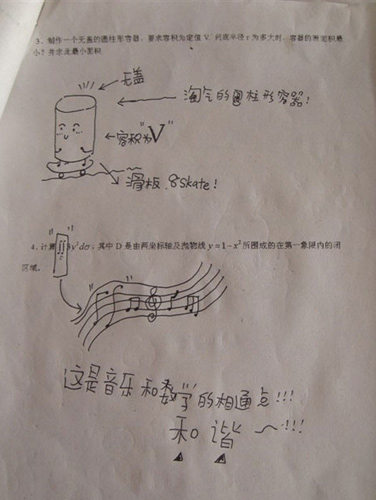 3、制作一个无盖的圆柱形容器，要求容积为定值 V，问底半径 r 为多大时，容器的表面积最
小？并求此最小面积
无盖
淘气的圆柱形容器！
容积为"V"
滑板 skate！
4、计算∬y²dσ，其中 D 是由两坐标轴及抛物线 y=1-x² 所围成的在第一象限内的闭
区域。
这是音乐和数学的相通点!!!
和谐～!!!